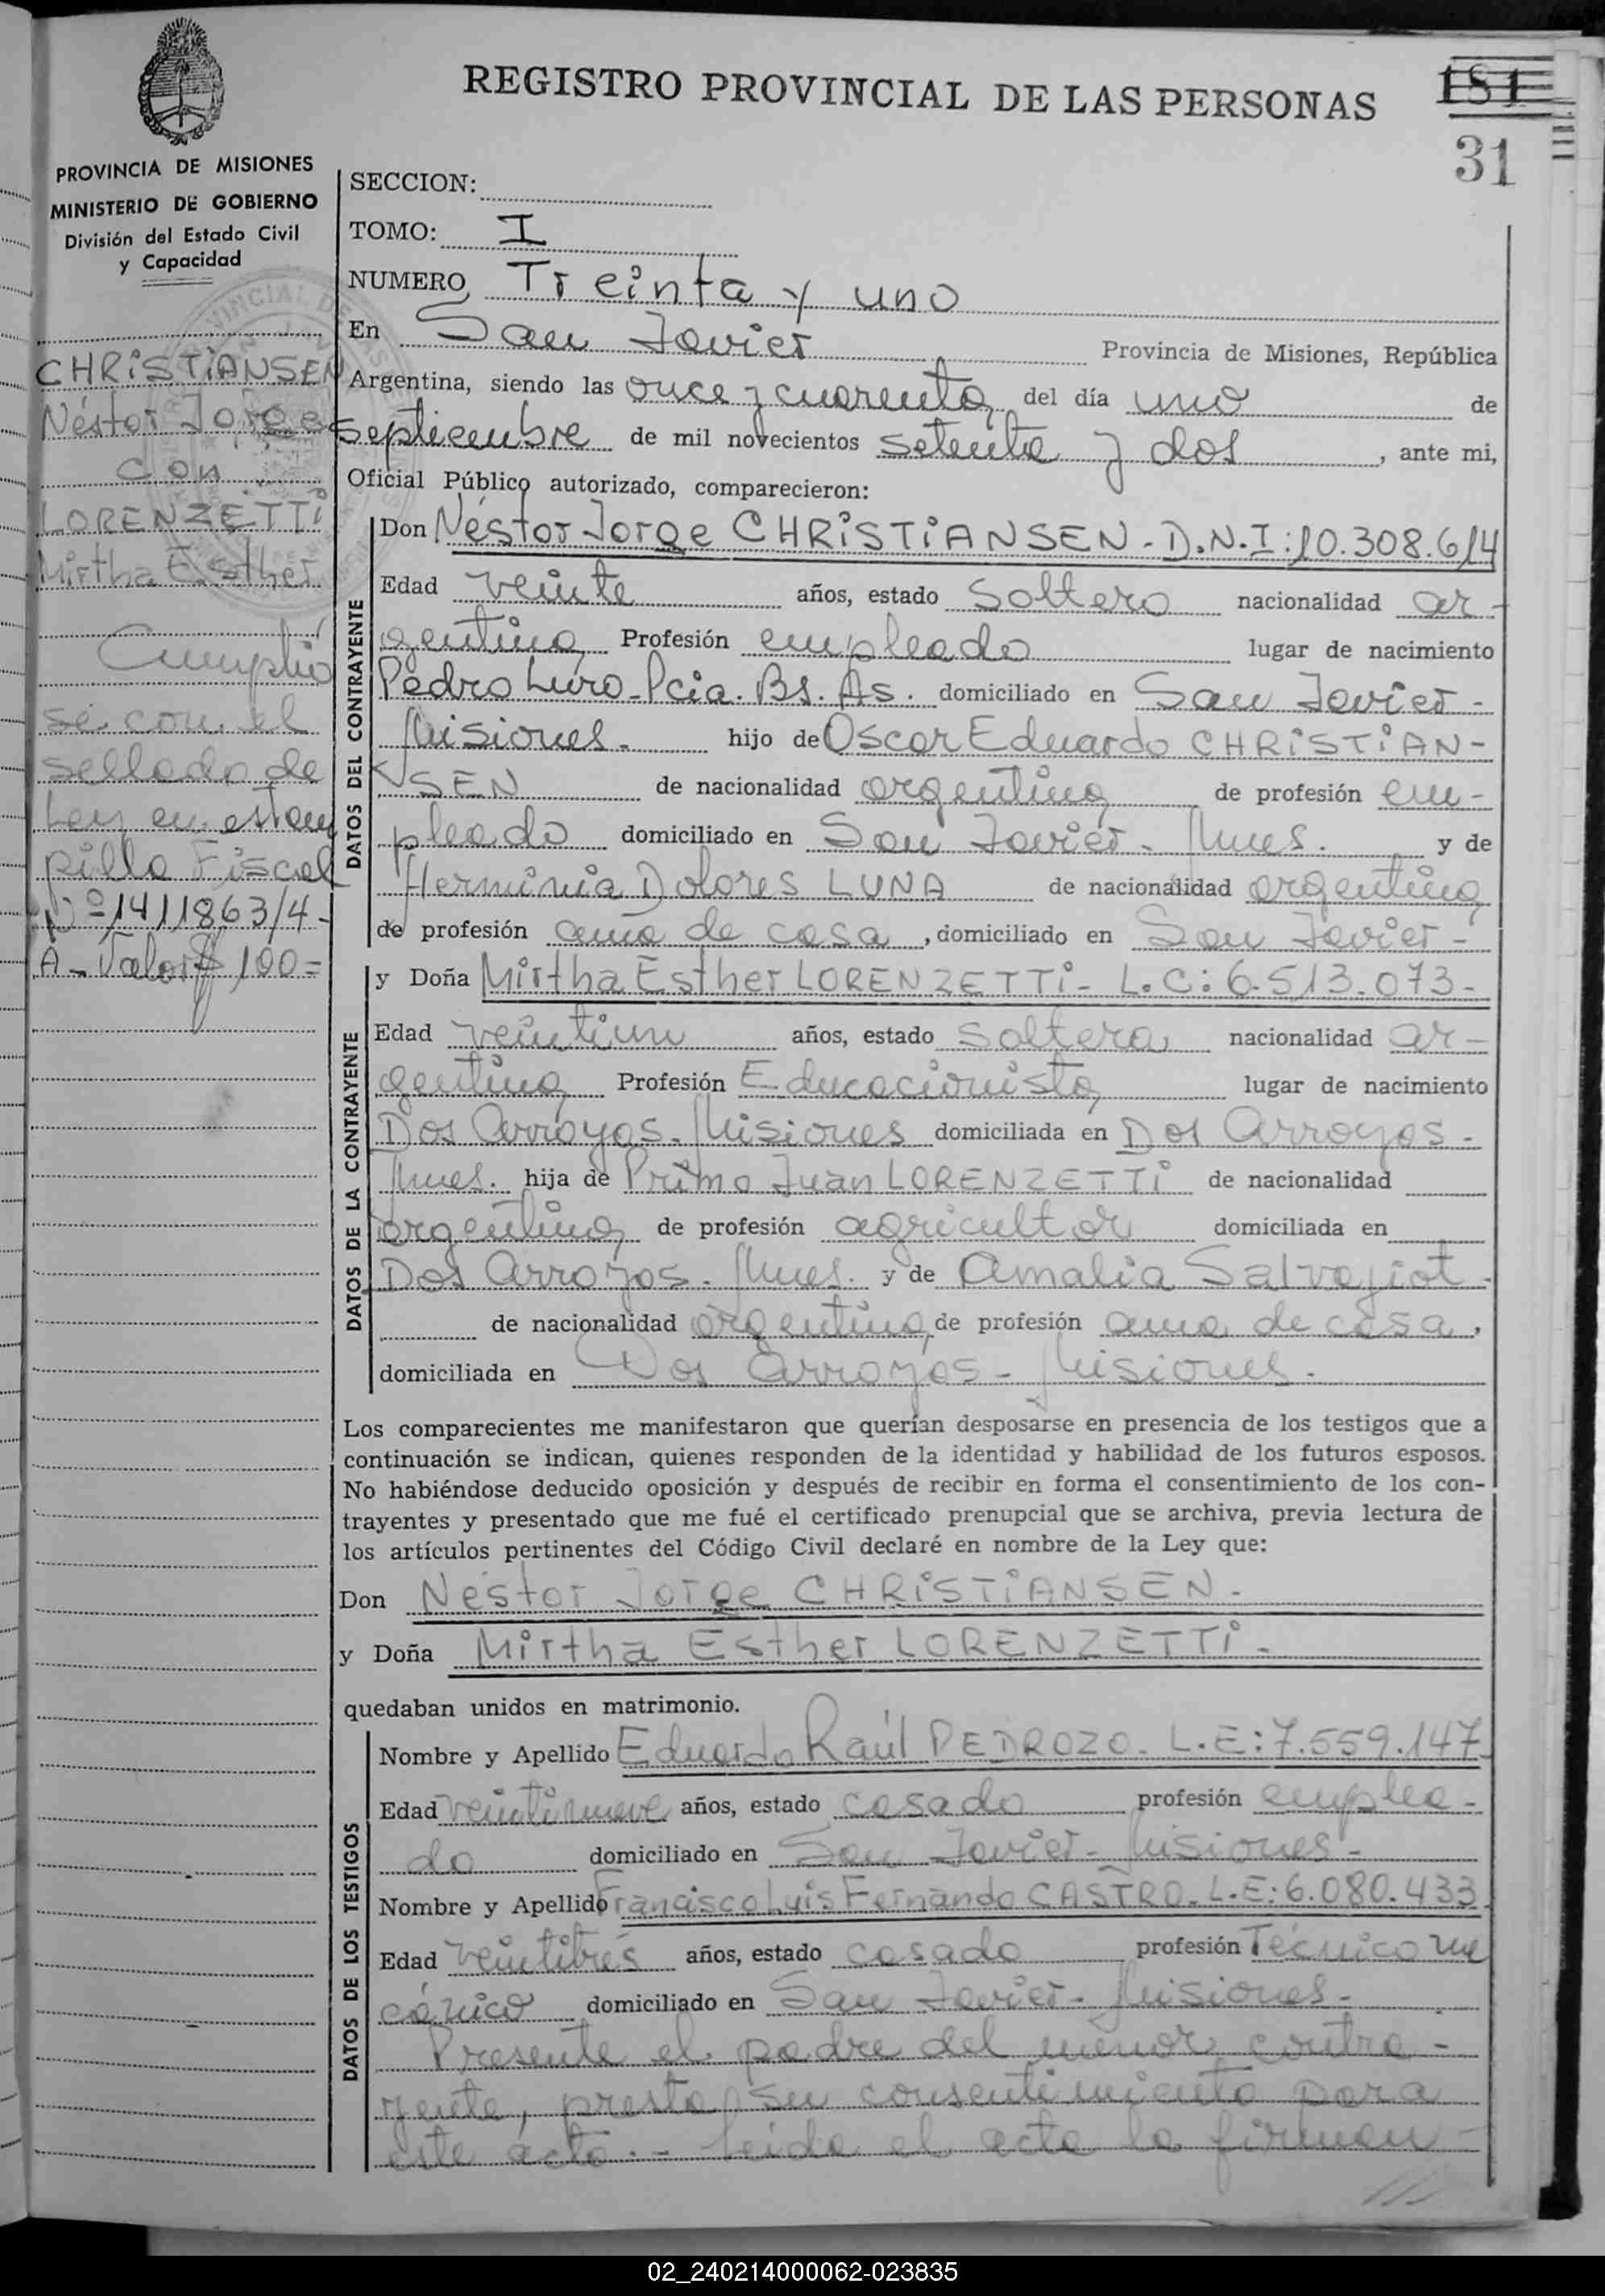 REGISTRO PROVINCIAL DE LAS PERSONAS
181
31
PROVINCIA DE MISIONES
MINISTERIO DE GOBIERNO
División del Estado Civil
y Capacidad
CHRiSTiANSEN
Néstor Jorge
con
LORENZETTi
Mirtha Esther
Cumplió
se con el
sellado de
Ley en estam
pilla Fiscal
Nº 1411863/4-
A- Valor $ 100=
SECCION:
TOMO: I
NUMERO Treinta y uno
En San Javier Provincia de Misiones, República
Argentina, siendo las once y cuarenta del día uno de
septiembre de mil novecientos setenta y dos, ante mi,
Oficial Público autorizado, comparecieron:
DATOS DEL CONTRAYENTE
Don Néstor Jorge CHRiSTiANSEN - D.N.I:10.308.614
Edad veinte años, estado soltero nacionalidad ar-
gentina Profesión empleado lugar de nacimiento
Pedro Luro-Pcia. Bs. As. domiciliado en San Javier-
Misiones. hijo de Oscar Eduardo CHRiSTiAN-
SEN de nacionalidad argentina de profesión em-
pleado domiciliado en San Javier- Mnes. y de
Herminia Dolores LUNA de nacionalidad argentina
de profesión ama de casa, domiciliado en San Javier-
DATOS DE LA CONTRAYENTE
y Doña Mirtha Esther LORENZETTi- L.C: 6.513.073-
Edad veintiun años, estado soltera nacionalidad ar-
gentina Profesión Educacionista lugar de nacimiento
Dos Arroyos- Misiones domiciliada en Dos Arroyos-
Mnes. hija de Primo Juan LORENZETTi de nacionalidad
argentina de profesión agricultor domiciliada en
Dos Arroyos- Mnes. y de Amalia Salvagiot-
de nacionalidad argentina de profesión ama de casa,
domiciliada en Dos Arroyos- Misiones.
Los comparecientes me manifestaron que querían desposarse en presencia de los testigos que a
continuación se indican, quienes responden de la identidad y habilidad de los futuros esposos.
No habiéndose deducido oposición y después de recibir en forma el consentimiento de los con-
trayentes y presentado que me fué el certificado prenupcial que se archiva, previa lectura de
los artículos pertinentes del Código Civil declaré en nombre de la Ley que:
Don Néstor Jorge CHRiSTiANSEN-
y Doña Mirtha Esther LORENZETTi-
quedaban unidos en matrimonio.
DATOS DE LOS TESTIGOS
Nombre y Apellido Eduardo Raúl PEDROZO- L.E:7.559.147-
Edad veintinueve años, estado casado profesión emplea-
do domiciliado en San Javier- Misiones-
Nombre y Apellido Francisco Luis Fernando CASTRO-L.E:6.080.433
Edad veintitrés años, estado casado profesión Técnico me
cánico domiciliado en San Javier- Misiones-
Presente el padre del menor contra-
yente, presta su consentimiento para
este acto.- Leída el acta la firman-
02_240214000062-023835